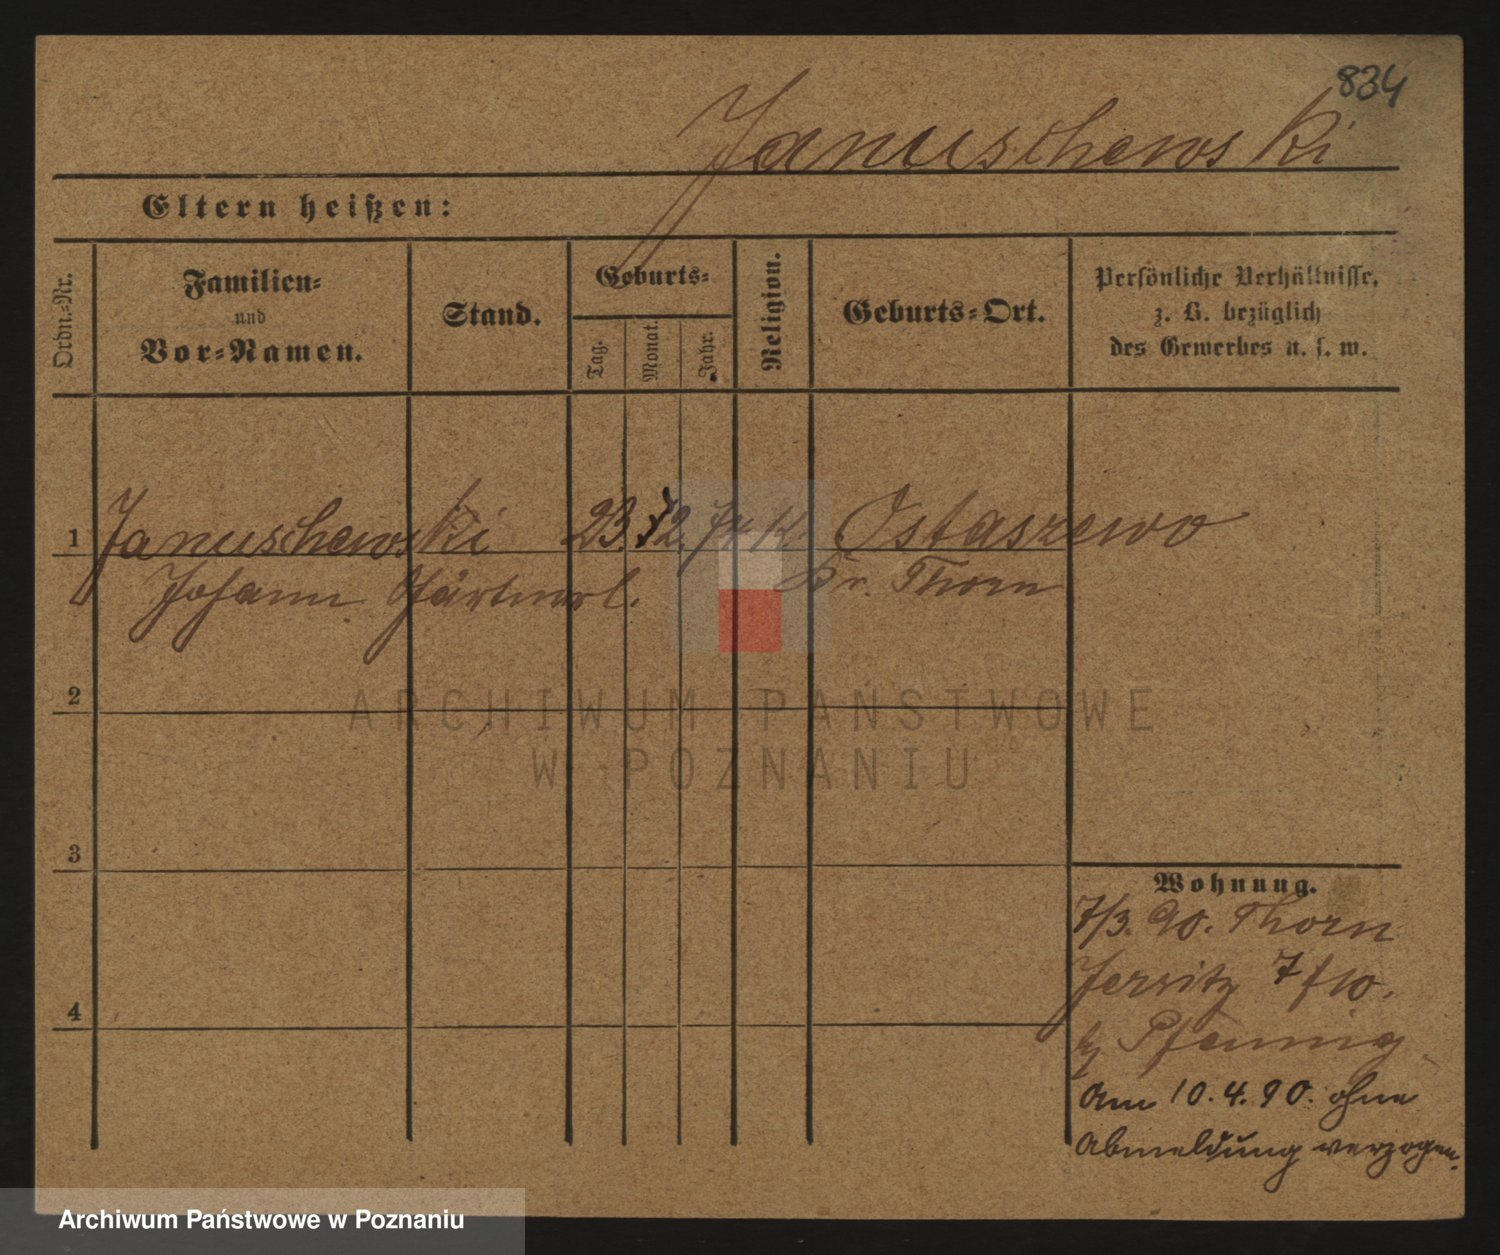 834
Januschewski
Eltern heißen:
Ordn.-Nr.
Familien-
und
Vor-Namen.
Stand.
Geburts-
Tag.
Monat.
Jahr.
Religion.
Geburts-Ort.
Persönliche Verhältnisse,
z. B. bezüglich
des Gewerbes u. s. w.
1 Januschewski 23. 12. K. Ostaszewo
Johann Kr. Thorn
2
3
4
Wohnung.
7/3. 90. Thorn
Jersitz 7
b/ Pfennig
Am 10. 4. 90. ohne
Abmeldung verzogen.
ARCHIWUM PAŃSTWOWE
W POZNANIU
Archiwum Państwowe w Poznaniu